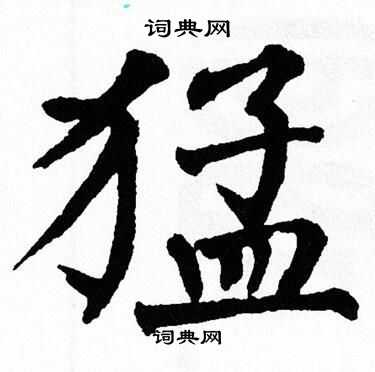 词典网
猛
词典网